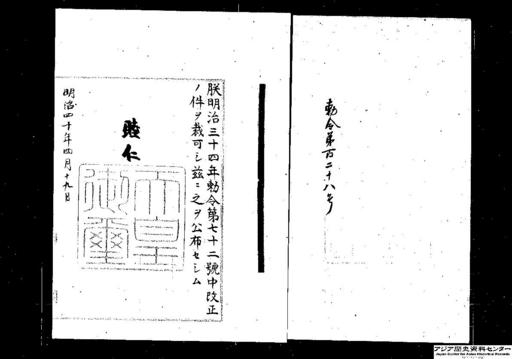 勅令第百二十八号
朕明治三十四年勅令第七十二號中改正
ノ件ヲ裁可シ玆ニ之ヲ公布セシム
睦仁
天皇
御璽
明治四十年四月十九日
アジア歴史資料センター
Japan Center for Asian Historical Records